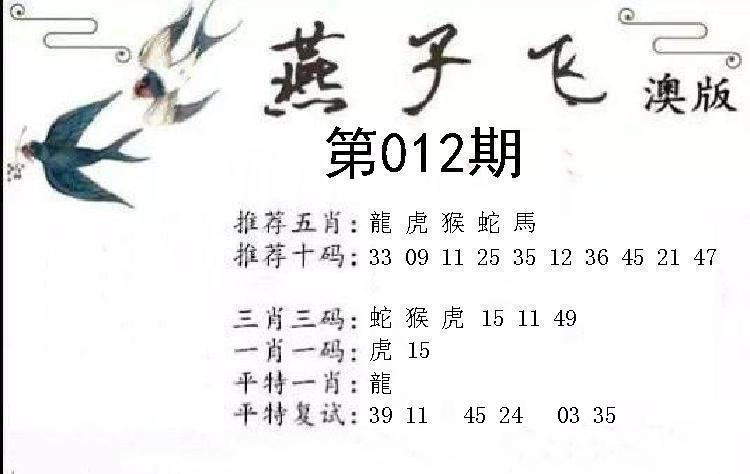 燕子飞 澳版
第012期
推荐五肖: 龍 虎 猴 蛇 馬
推荐十码: 33 09 11 25 35 12 36 45 21 47
三肖三码: 蛇 猴 虎 15 11 49
一肖一码: 虎 15
平特一肖: 龍
平特复试: 39 11 45 24 03 35